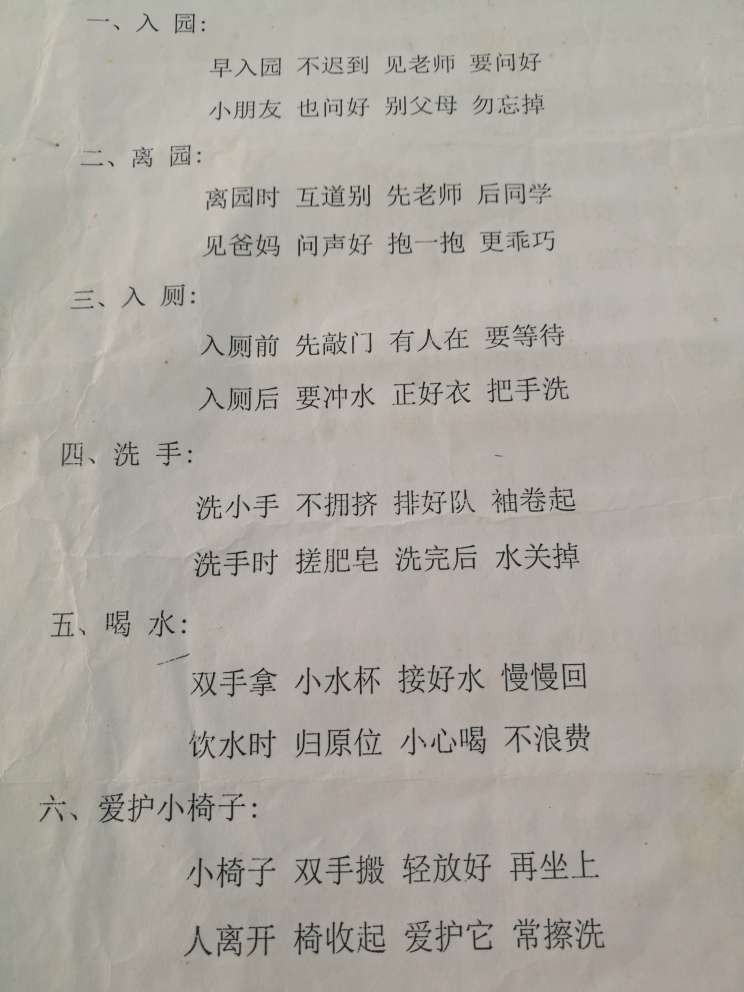 一、入 园:
早入园 不迟到 见老师 要问好
小朋友 也问好 别父母 勿忘掉
二、离 园:
离园时 互道别 先老师 后同学
见爸妈 问声好 抱一抱 更乖巧
三、入 厕:
入厕前 先敲门 有人在 要等待
入厕后 要冲水 正好衣 把手洗
四、洗 手:
洗小手 不拥挤 排好队 袖卷起
洗手时 搓肥皂 洗完后 水关掉
五、喝 水:
双手拿 小水杯 接好水 慢慢回
饮水时 归原位 小心喝 不浪费
六、爱护小椅子:
小椅子 双手搬 轻放好 再坐上
人离开 椅收起 爱护它 常擦洗